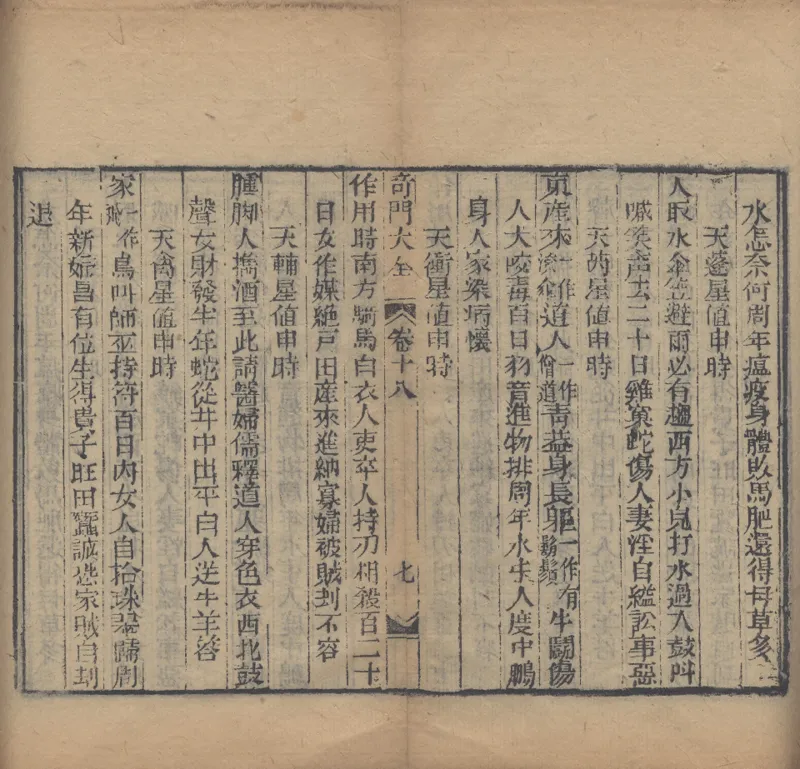 水怎奈何周年瘟疫身體敗馬肥還得母草多
天蓬星值申時
人取水傘笠避雨必有趨西方小兒打水過人鼓叫
喊笑声去二十日雞窠蛇傷人妻淫自縊訟事惡
天芮星值申時
東産來一作道人一作僧道青蓋身長軀一作有鬍鬚牛鬪傷
人犬咬毒百日羽音進物排周年水牛人度中鵬
身人家染病懷
天衝星值申時
奇門大全 卷十八 七
作用時南方騎馬白衣人吏卒人持刃相殺百二十
日女作媒絶戸田産來進納寡婦被賊刦不容
天輔星值申時
腫脚人擕酒至此請醫婦儒釋道人穿色衣西北鼓
聲女財發半年蛇從井中出平白人送牛羊答
天禽星值申時
家一作鳥叫師巫持符百日內女人自拾珠翠歸周
年新婦昌有位生得貴子旺田蠶誠恐家賊自刦
退